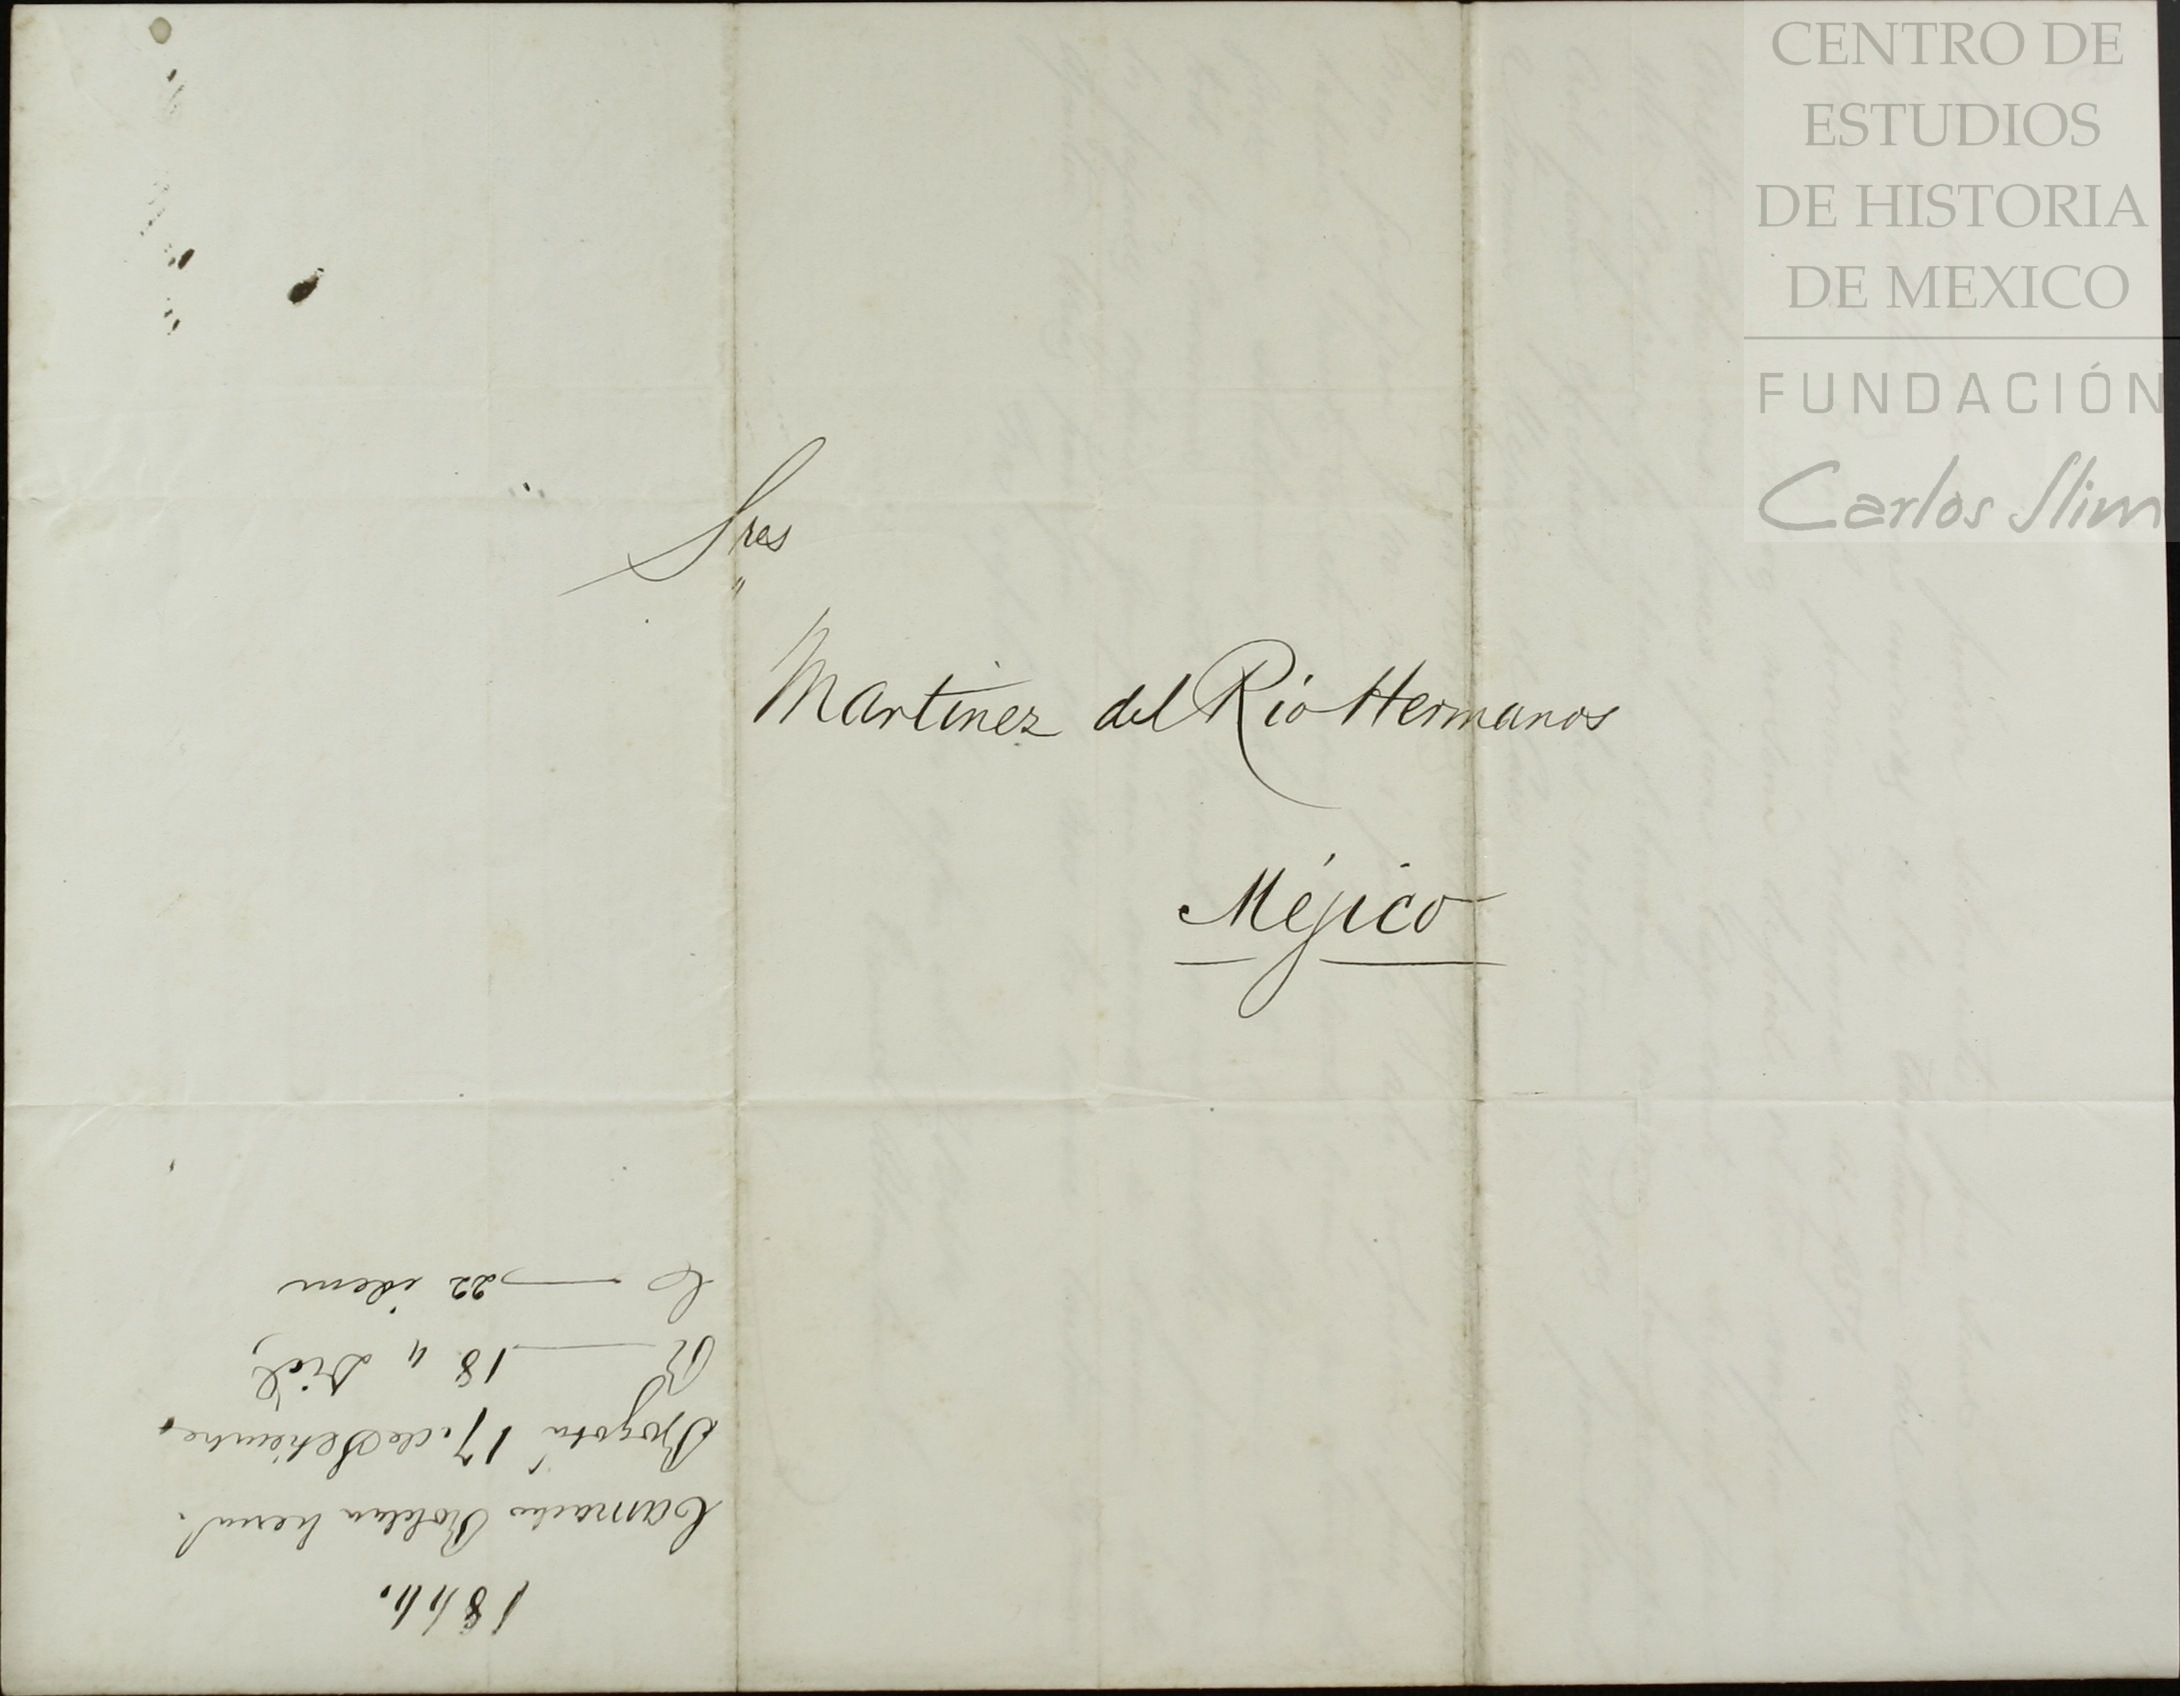 CENTRO DE
ESTUDIOS
DE HISTORIA
DE MEXICO
FUNDACIÓN
Carlos Slim
Sres
Martinez del Rio Hermanos
Méjico
1844.
Camacho Roldan herms.
Bogotá 17, de Setiembre,
R 18 " Dice,
C 22 idem